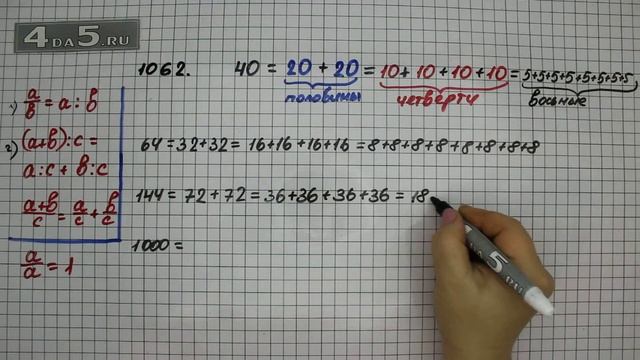 4DA5.RU
1062. 40 = 20 + 20 = 10 + 10 + 10 + 10 = 5+5+5+5+5+5+5+5
половины четверти восьмые
1) a/b = a : b
2) (a+b) : c =
a : c + b : c
a+b/c = a/c + b/c
a/a = 1
64 = 32 + 32 = 16+16+16+16 = 8+8+8+8+8+8+8+8
144 = 72 + 72 = 36 + 36 + 36 + 36 = 18
1000 =
DA5